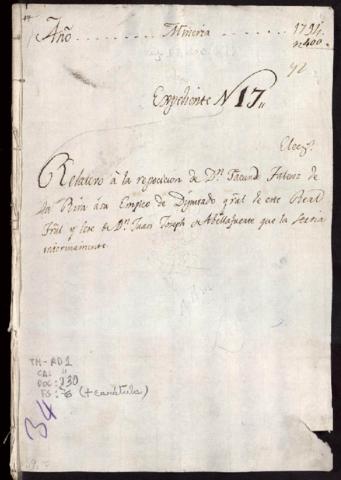 Año . . . . . . . . . Mineria . . . . . . . . . 1794
nº 400
92
Expediente N 17,,
Elecg.
Relativo à la reposicion de Dn. Facund
de
la Riva àsu Empleo de Diputado gral de este Real
Trãl y Cese de Dn. Juan Joseph de Abellafuerte que la servia
interinamente.
TM-AD1
CAJ "
DOC: 230
FS: 76 (+ carátula)
34